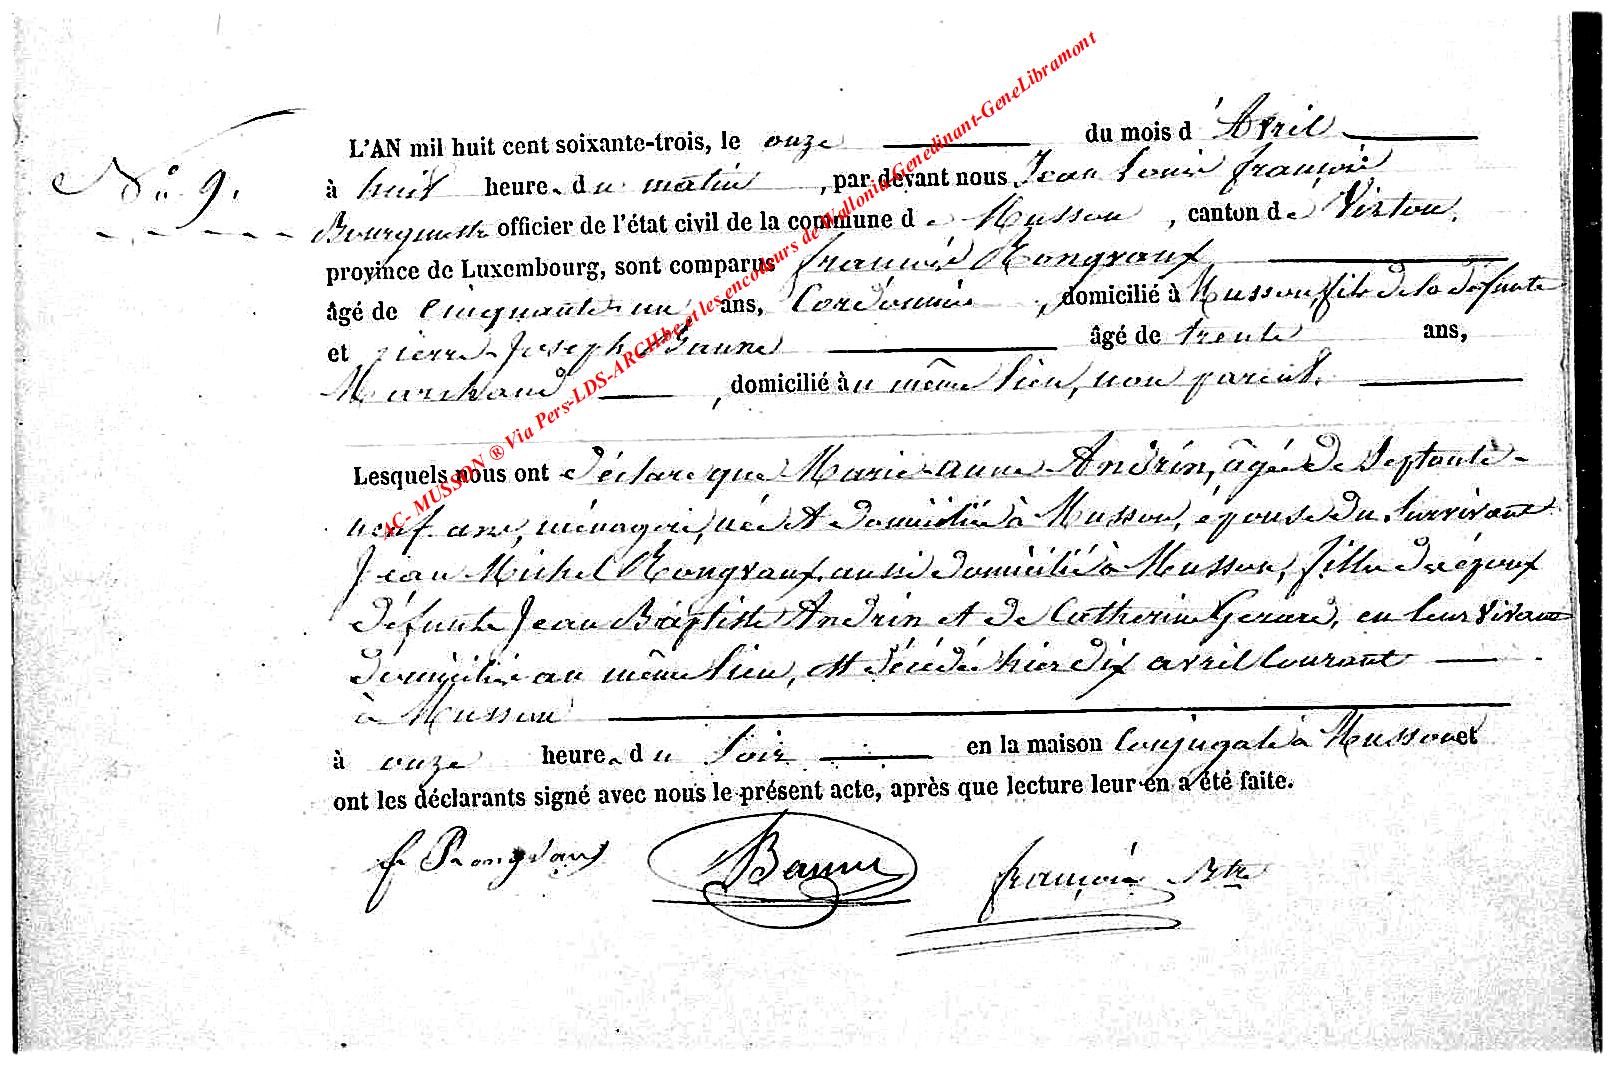 L'AN mil huit cent soixante-trois, le onze du mois d'Avril
No. 9. à huit heures du matin, par devant nous Jean Louis françois
Bourgmestre officier de l'état civil de la commune de Musson, canton de Virton,
province de Luxembourg, sont comparus françois Rongvaux
âgé de Cinquante un ans, Cordonnier, domicilié à Musson, fils de la défunte
et pierre-Joseph Baune âgé de trente ans,
Marchand, domicilié au même lieu, non parent.
Lesquels nous ont déclaré que Marie-anne Andrin, âgée de Septante-
neuf ans, ménagère, née et domiciliée à Musson, épouse du Survivant
Jean Michel Rongvaux, aussi domicilié à Musson, fille des époux
défunts Jean Baptiste Andrin et de Catherine Gerard, en leur vivant
domiciliés au même lieu, est décédée hier dix avril Courant
à Musson
à onze heures du Soir en la maison Conjugale à Musson et
ont les déclarants signé avec nous le présent acte, après que lecture leur en a été faite.
f Rongvaux Baune françois Btre
AC- MUSSON ® Via Pers-LDS-ARCH.be et les encodeurs de Wallonia-Genedinant-GeneLibramont